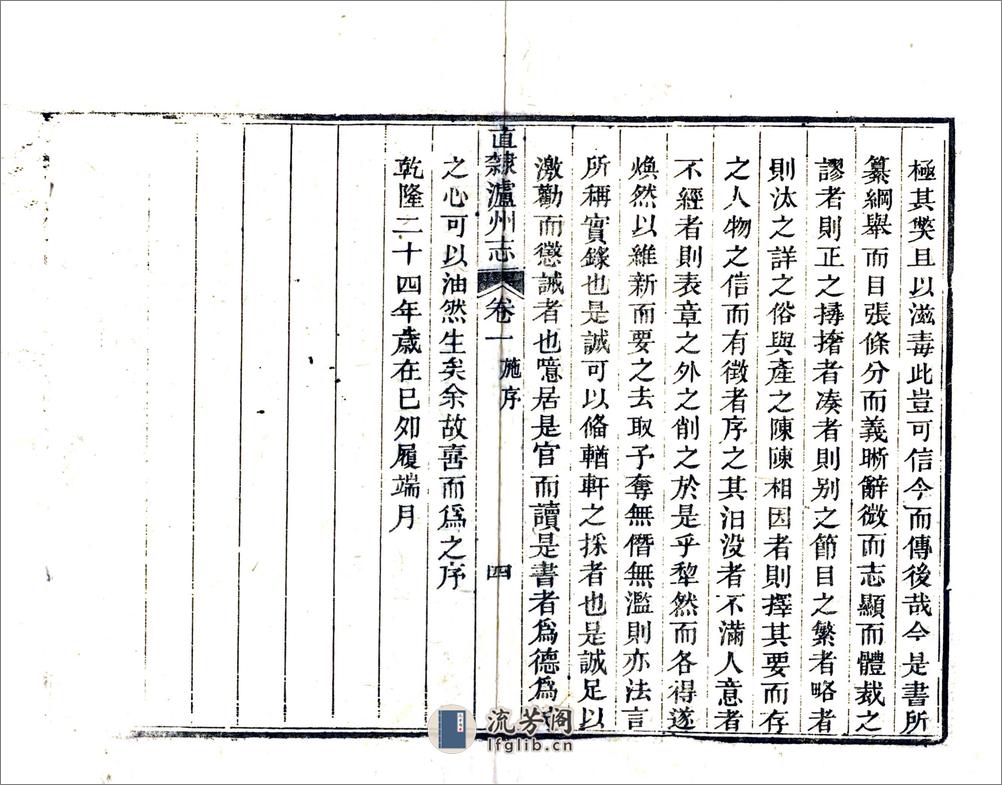 極其獘且以滋毒此豈可信今而傳後哉今是書所
纂綱舉而目張條分而義晰辭微而志顯而體裁之
謬者則正之撏撦者凑者則别之節目之繁者略者
則汰之詳之俗與產之陳陳相因者則擇其要而存
之人物之信而有徵者序之其汨没者不滿人意者
不經者則表章之外之削之於是乎犂然而各得遂
煥然以維新而要之去取予奪無僭無濫則亦法言
所稱實錄也是誠可以俻輶軒之採者也是誠足以
激勸而懲誡者也噫居是官而讀是書者爲德爲
直隸瀘州志 卷一 施序 四
之心可以油然生矣余故喜而爲之序
乾隆二十四年歲在己夘履端月
流芳阁
lfglib.cn